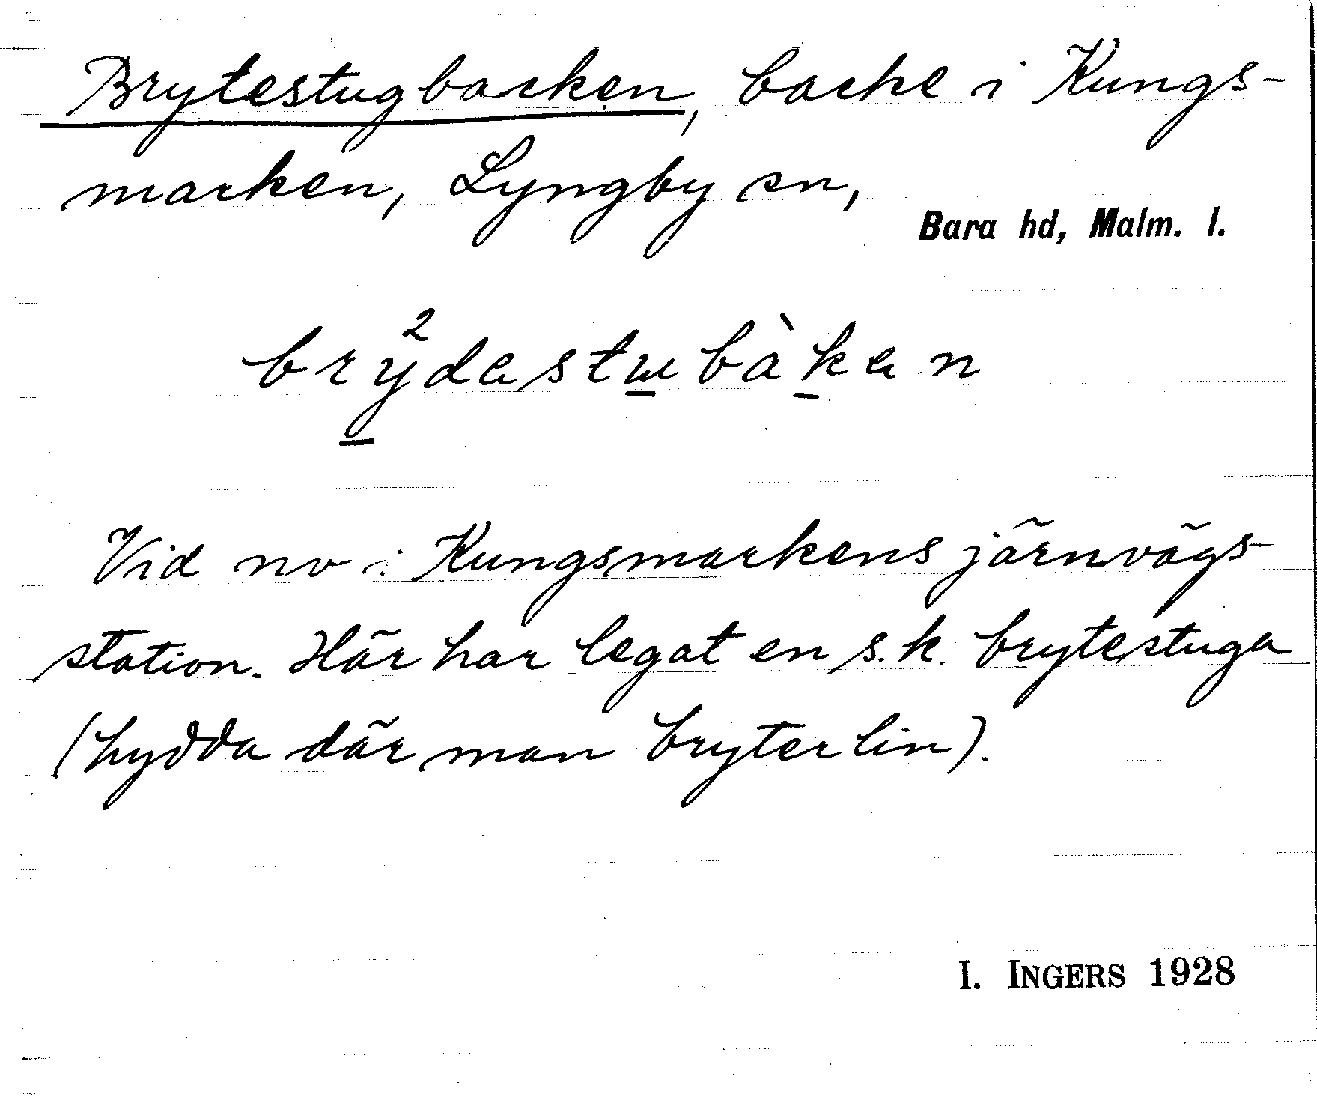 Brytestugbacken, backe i Kungs-
marken, Lyngby sn,
Bara hd, Malm. l.
brÿ²dastubàkan
Vid nv i Kungsmarkens järnvägs-
station. Här har legat en s.k. brytestuga
(hydda där man bryter lin).
I. INGERS 1928